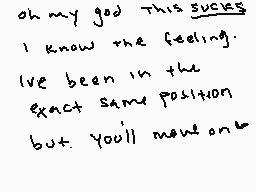 oh my god this sucks
i know the feeling.
ive been in the
exact same position
but. you'll move on